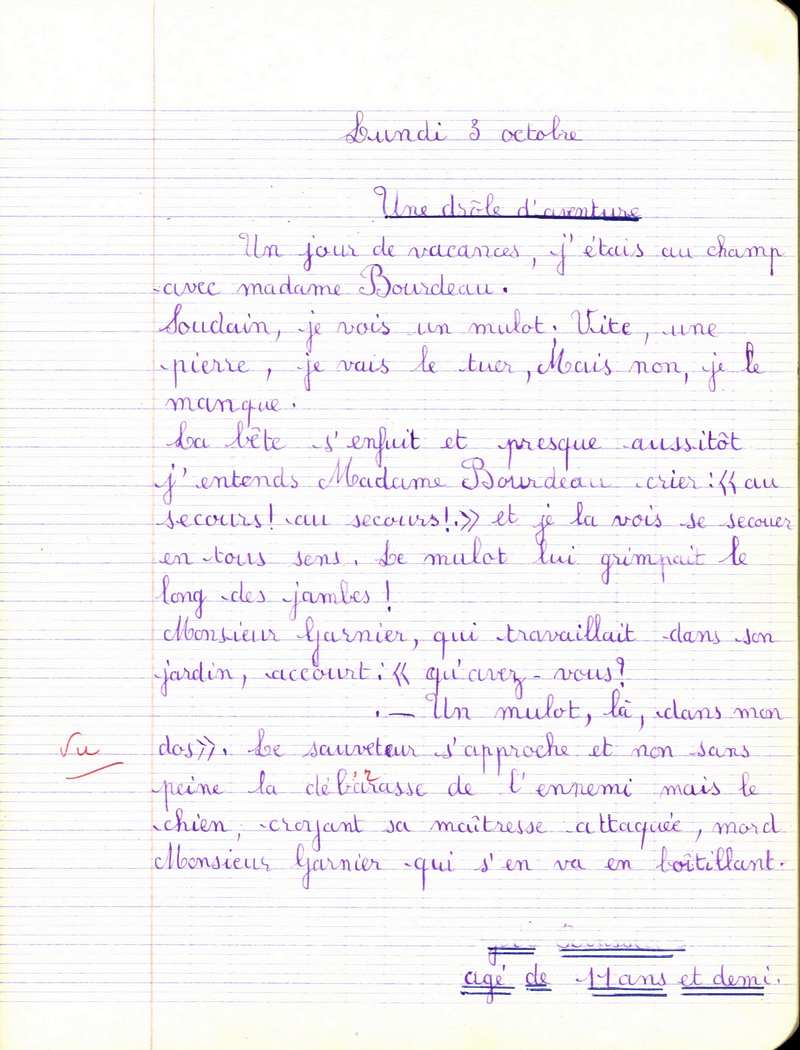 Lundi 3 octobre
Une drôle d'aventure
Un jour de vacances, j'étais au champ
avec madame Bourdeau.
Soudain, je vois un mulot. Vite, une
pierre, je vais le tuer, Mais non, je le
manque.
La bête s'enfuit et presque aussitôt
j'entends Madame Bourdeau crier : « au
secours ! au secours !. » et je la vois se secouer
en tous sens. Le mulot lui grimpait le
long des jambes !
Monsieur Garnier, qui travaillait dans son
jardin, accourt : « qu'avez-vous?
. — Un mulot, là, dans mon
Vu
dos ». Le sauveteur s'approche et non sans
peine la débarrasse de l'ennemi mais le
chien, croyant sa maîtresse attaquée, mord
Monsieur Garnier qui s'en va en boîtillant.
agé de 11 ans et demi.